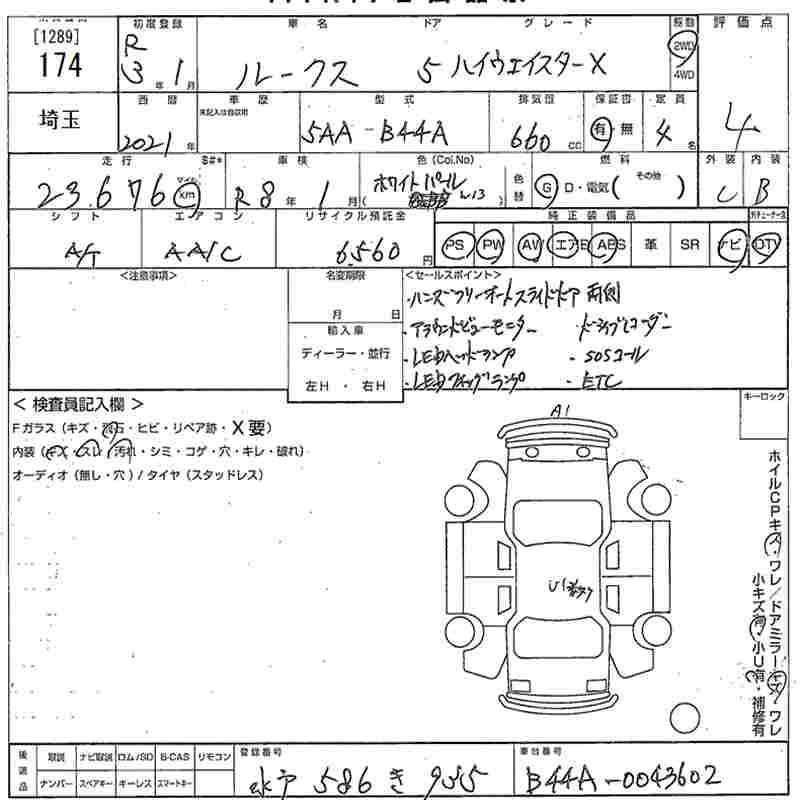 [1289]
174
初度登録 車名 ドア グレード 駆動 評価点
R 3年 1月 ルークス 5 ハイウェイスターX 2WD 4WD
4
埼玉
西暦 車歴 型式 排気量 保証書 定員
2021年 未記入は自家用 5AA-B44A 660cc 有・無 4名
走行 車検 色(Col.No) 燃料 外装 内装
23,676 マイル km R8年 1月 ホワイトパール 色替 G D・電気(その他) C B
シフト エアコン リサイクル預託金 純正装備品
A/T AA/C 6,560円 PS PW AW エアB ABS 革 SR ナビ DTV
<注意事項> 名変期限 <セールスポイント>
月 日
・ハンズフリーオートスライドドア 両側
輸入車
・アラウンドビューモニター ・ドライブレコーダー
ディーラー・並行
・LEDヘッドランプ ・SOSコール
左H・右H
・LEDフォグランプ ・ETC
<検査員記入欄> キーロック
A1
Fガラス(キズ・飛石・ヒビ・リペア跡・X要)
内装(キズ・スレ・汚れ・シミ・コゲ・穴・キレ・破れ)
オーディオ(無し・穴)/タイヤ(スタッドレス)
ホイルCPキズ・ワレ/ドアミラーキズ・ワレ
小キズ有・小U有・補修有
U1
後返品 取説 ナビ取説 ロム/SD B-CAS リモコン 登録番号 車台番号
ナンバー スペアキー キーレス スマートキー 水戸 586 き 955 B44A-0043602